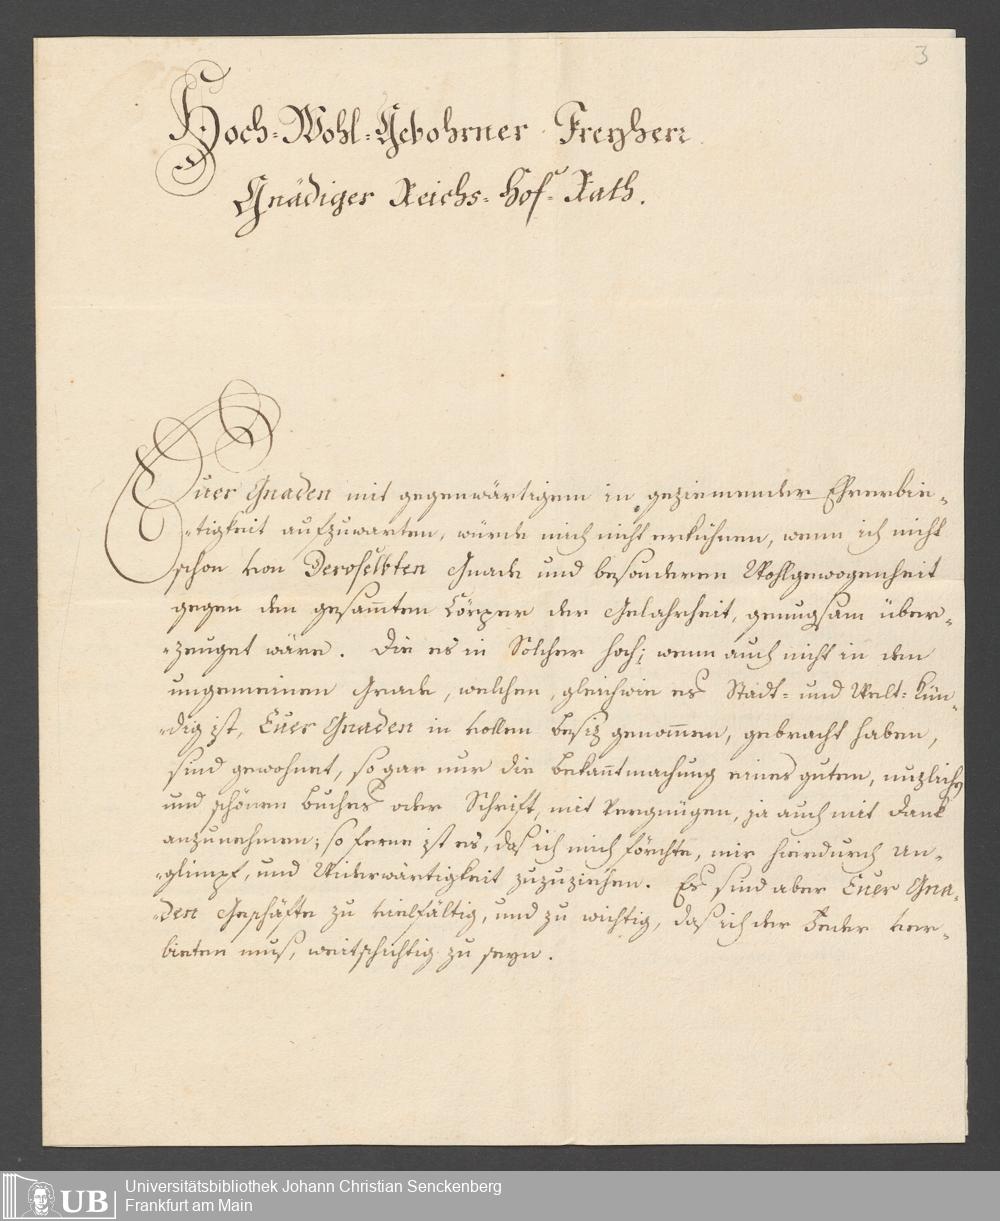 3
Hoch-Wohl-Gebohrner Freyherr
Gnädiger Reichs-Hof-Rath.
Euer Gnaden mit gegenwärtigem in geziemender Ehrerbie-
-tigkeit aufzuwarten, würde mich nicht erkühnen, wenn ich nicht
schon von Deroselbten Gnade und besonderen Wohlgewogenheit
gegen den gesam̅ten Cörper der Gelahrheit, genugsam über-
-zeuget wäre. Die es in Solcher hoch; wenn auch nicht in dem
ungemeinen Grade, welchen, gleichwie es Stadt- und Welt-Kün-
-dig ist, Euer Gnaden in vollen Besiz genom̅en, gebracht haben,
sind gewohnet, so gar nur die Bekan̅tmachung eines guten, nuzlichen
und schönen Buches oder Schrift, mit Vergnügen, ja auch mit Dank
anzunehmen; so ferne ist es, daß ich mich förchte, mir hierdurch Un-
-glimpf, und Widerwärtigkeit zuzuziehen. Es sind aber Euer Gna-
-den Geschäfte zu vielfältig, und zu wichtig, daß ich der Feder ver-
bieten muß, weitschichtig zu seyn.
UB
Universitätsbibliothek Johann Christian Senckenberg
Frankfurt am Main